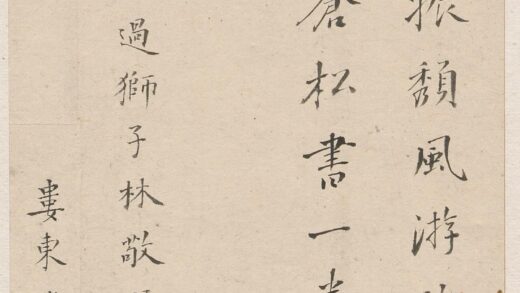 振頹風游
蒼松書一
過獅子林敬
婁東